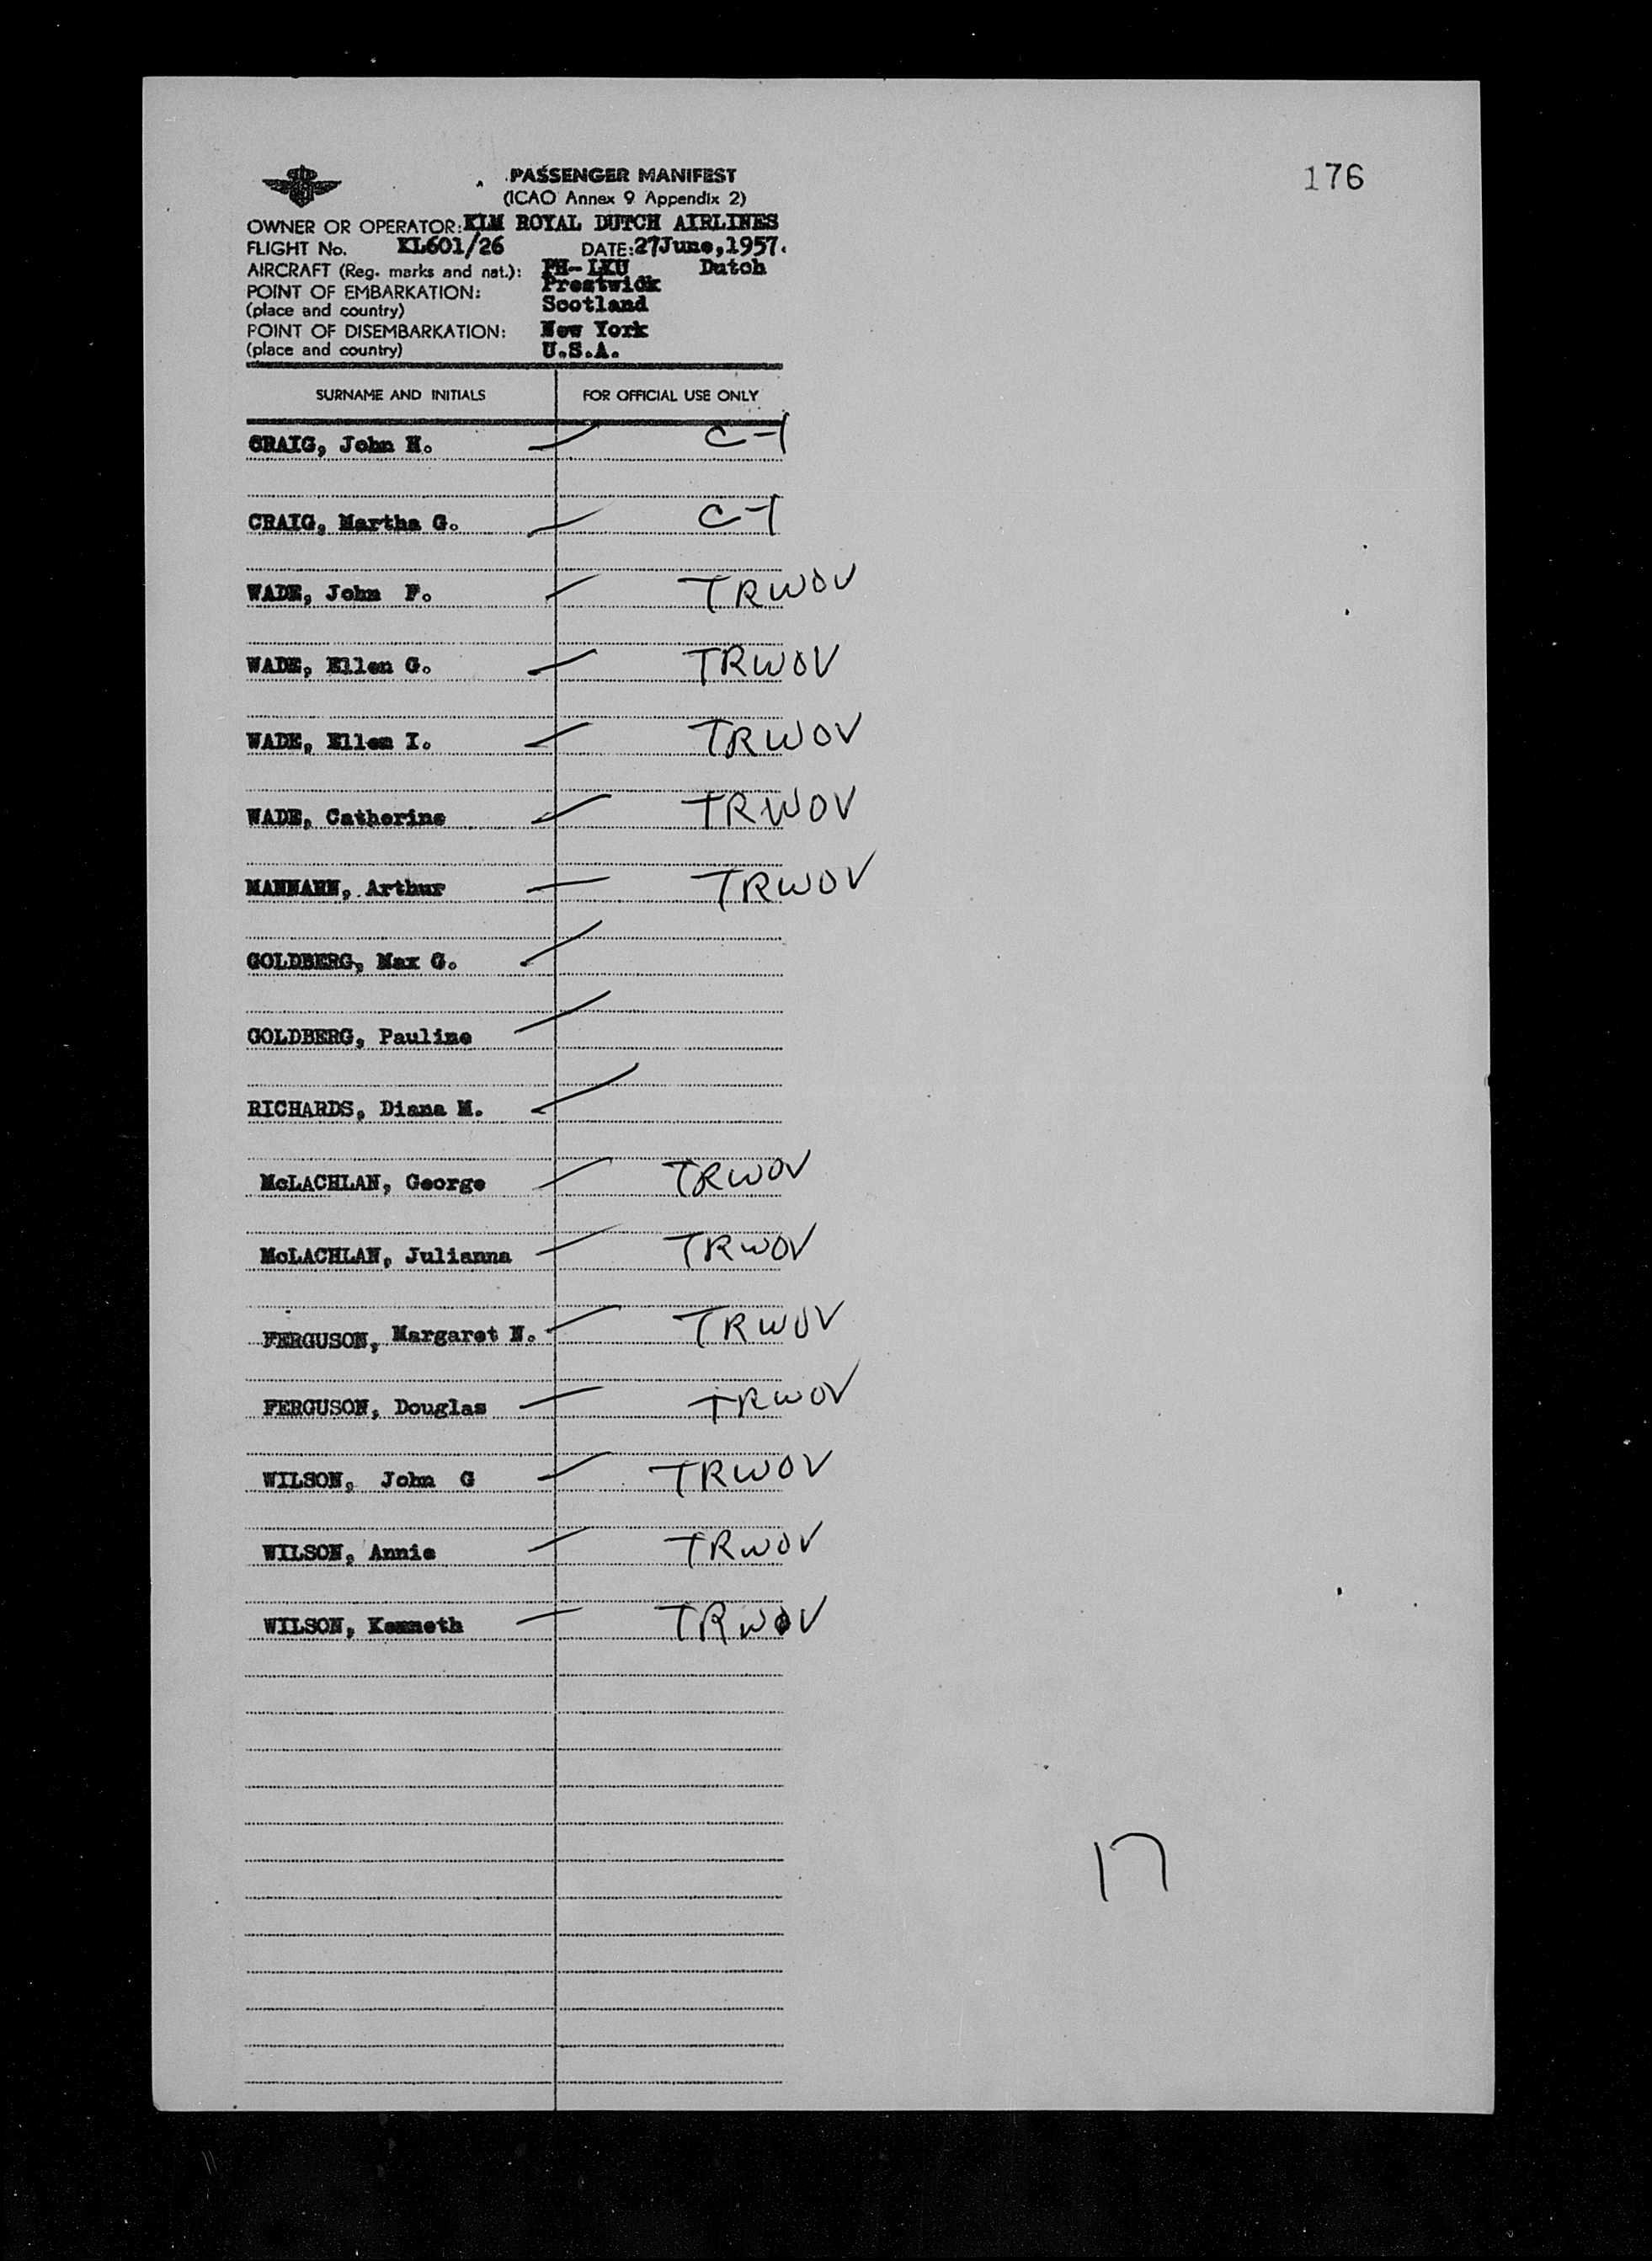 176
PASSENGER MANIFEST
(ICAO Annex 9 Appendix 2)
OWNER OR OPERATOR: KLM ROYAL DUTCH AIRLINES
FLIGHT No. KL601/26 DATE: 27June, 1957.
AIRCRAFT (Reg. marks and nat.): PH-LKU Dutch
POINT OF EMBARKATION: Prestwick
(place and country) Scotland
POINT OF DISEMBARKATION: New York
(place and country) U.S.A.
SURNAME AND INITIALS FOR OFFICIAL USE ONLY
CRAIG, John H. C-1
CRAIG, Martha G. C-1
WADE, John F. TRWOV
WADE, Ellen G. TRWOV
WADE, Ellen I. TRWOV
WADE, Catherine TRWOV
Arthur TRWOV
GOLDBERG, Max G.
GOLDBERG, Pauline
RICHARDS, Diana M.
McLACHLAN, George TRWOV
McLACHLAN, Julianna TRWOV
FERGUSON, Margaret N. TRWOV
FERGUSON, Douglas TRWOV
WILSON, John G TRWOV
WILSON, Annie TRWOV
WILSON, Kenneth TRWOV
17